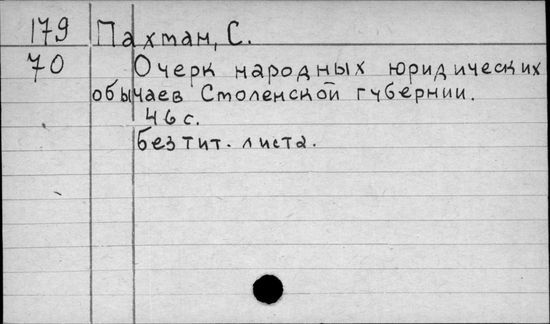 179 Пахтан, С.
70 Очерк народных юридических
обычаев Смоленской губернии.
46 с.
без тит. листа.